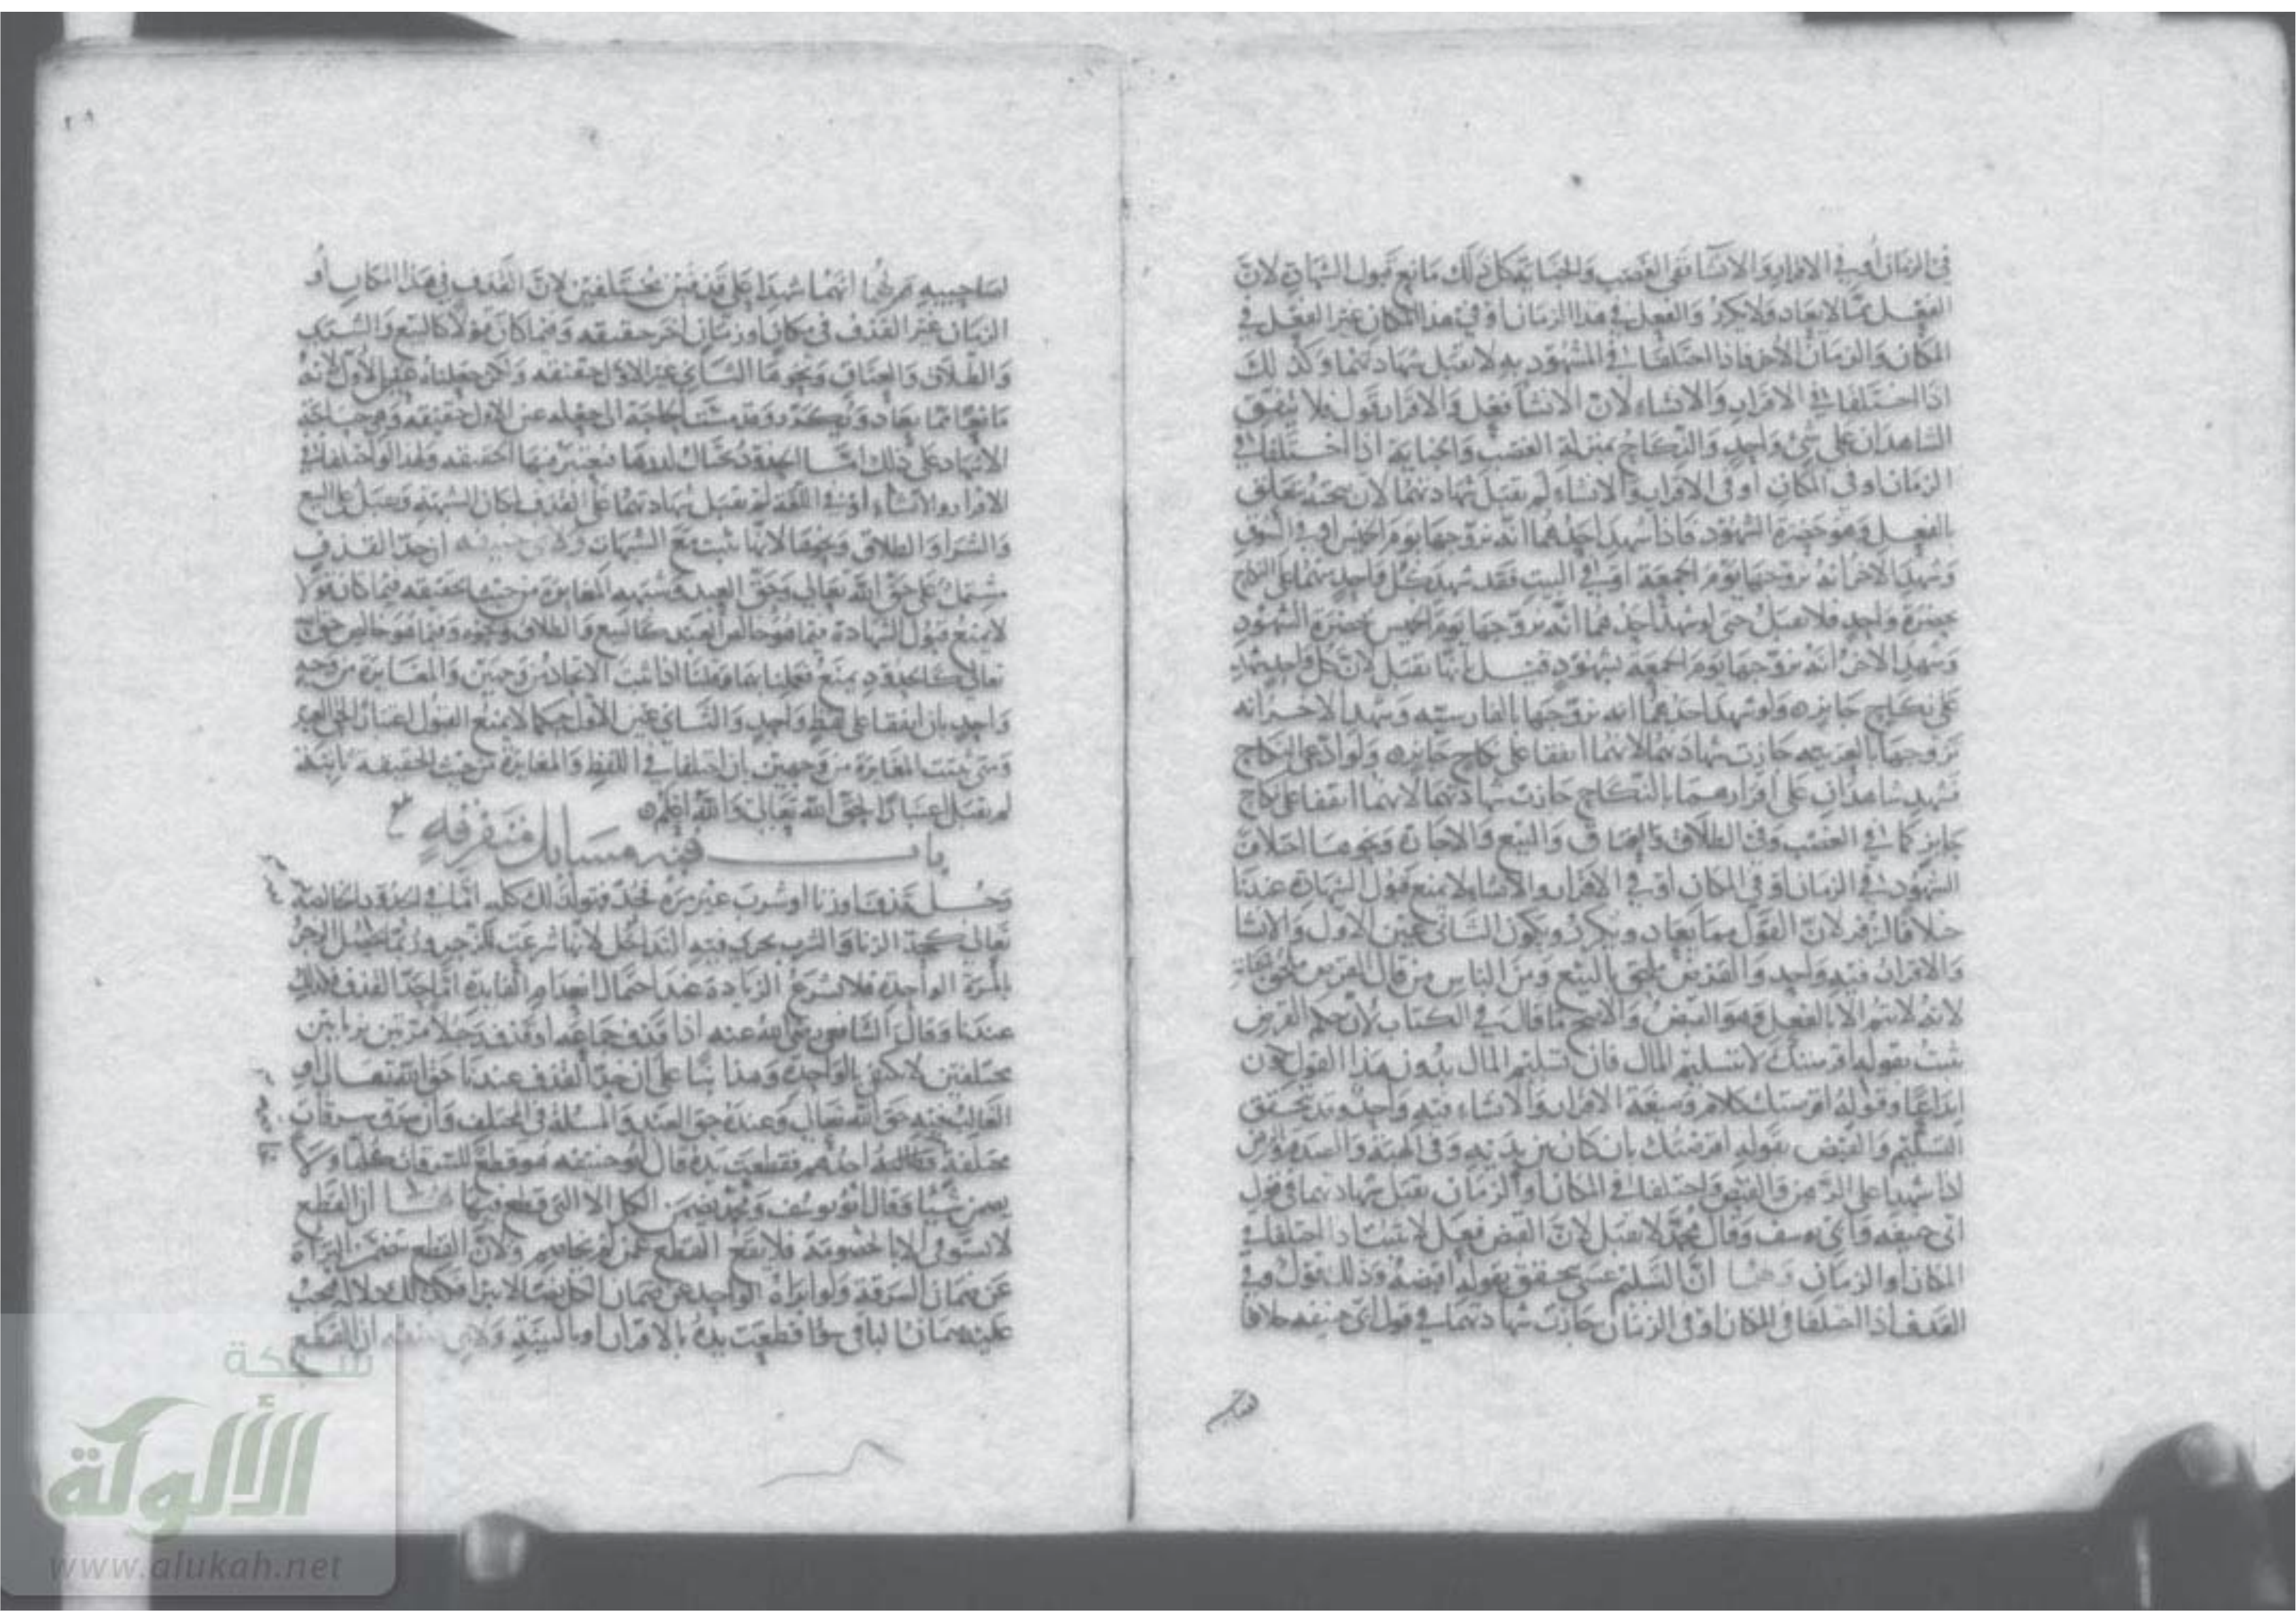 في الزمان أو في الاقرار والانشاء ففي الغصب والجناية كل ذلك مانع قبول الشهادة لأن
الفعل مما لا يعاد ولا يكرر والفعل في هذا الزمان أو في هذا المكان غير الفعل في
المكان والزمان الآخر فاذا اختلفا في المشهود به لا تقبل شهادتهما وكذلك
اذا اختلفا في الاقرار والانشاء لأن الانشاء فعل والاقرار قول فلا يتفق
الشاهدان على شيء واحد والنكاح بمنزلة الغصب والجناية اذا اختلفا في
الزمان او في المكان أو في الاقرار والانشاء لم تقبل شهادتهما لان صحته تتعلق
بالفعل وهو حضرة الشهود فاذا شهد احدهما انه تزوجها يوم الخميس او في السوق
وشهد الاخر انه تزوجها يوم الجمعة او في البيت فقد شهد كل واحد منهما على النكاح
بحضرة واحد فلا تقبل حتى لو شهد احدهما انه تزوجها يوم الخميس بحضرة الشهود
وشهد الاخر انه تزوجها يوم الجمعة بشهود قيل بانها تقبل لان كل واحد شهد
على نكاح جايز ولو شهد احدهما انه تزوجها بالفارسية وشهد الاخر انه
تزوجها بالعربية جازت شهادتهما لانهما اتفقا على نكاح جايز ولو ادعى النكاح
فشهد شاهدان على اقرارهما بالنكاح جازت شهادتهما لانهما اتفقا على نكاح
جايز كما في الغصب وفي الطلاق والعتاق والبيع والاجارة ونحوها اختلاف
الشهود في الزمان او في المكان أو في الاقرار والانشاء لا يمنع قبول الشهادة عندنا
خلافا لزفر لان القول مما يعاد ويكرر ويكون الثاني عين الاول والانشاء
والاقرار فيه واحد والقرض ملحق بالبيع ومن الناس من قال القرض ملحق
لانه لا يتم الا بالفعل وهو القبض والاصح ما قال في الكتاب لان حكم القرض
يثبت بقوله اقرضتك لا بتسليم المال فان تسليم المال بدون هذا القول يكون
ايداعا وقوله اقرضتك كلام وصيغة الاقرار والانشاء فيه واحد وقد تحقق
التسليم والقبض بقوله اقرضتك بان كان بين يديه وفي الهبة والصدقة والرهن
اذا شهدا على الرهن والقبض واختلفا في المكان أو الزمان تقبل شهادتهما في قول
ابي حنيفة وابي يوسف وقال محمد لا تقبل لان القبض فعل لا يثبت اذا اختلفا في
المكان أو الزمان وهما ان التسليم عسى يتحقق بقوله ايضا وذلك قول وفي
القذف اذا اختلفا في المكان او في الزمان جازت شهادتهما في قول ابي حنيفة خلافا
لصاحبيه انهما شهدا على قذفين مختلفين لان القذف في هذا المكان أو
الزمان غير القذف في مكان او زمان اخر حقيقة وفيما كان قولا كالبيع والشراء
والطلاق والعتاق ونحوها الثاني غير الاول حقيقة ولكن جعلناه عين الأول لأنه
مما يعاد ويكرر وقد مست الحاجة الى جعله عين الاول حقيقة وهي حاجة
الاشهاد على ذلك اما الحدود يحتال لدرءها فيعتبر فيها الحقيقة ولهذا لو اختلفا في
الاقرار والانشاء أو في اللغة لم تقبل شهادتهما على القذف لمكان الشبهة وتقبل على البيع
والشراء والطلاق ونحوها لانها تثبت مع الشبهات ولابي حنيفة ان حد القذف
مشتمل على حق الله تعالى وحق العبد وشبهة المغايرة من حيث الحقيقة فيما كان قولا
لا يمنع قبول الشهادة فيما هو خالص حق العبد كالبيع والطلاق ونحوه وفيما هو خالص حق الله
تعالى كالحدود يمنع فعملنا بهما وقلنا اذا ثبت الاتحاد من وجهين والمغايرة من وجه
واحد بان اتفقا على لفظ واحد والثاني عين الأول حكما لا يمنع القبول اعتبارا لحق العبد
ومتى ثبتت المغايرة من وجهين بان اختلفا في اللفظ والمغايرة من حيث الحقيقة ثابتة
لم تقبل اعتبارا لحق الله تعالى والله اعلم
باب فيه مسايل متفرقة
رجل قذف او زنا او شرب غير مرة فحد فهو لذلك كله اما في الحدود الخالصة لله
تعالى كحد الزنا والشرب يجري فيه التداخل لانها شرعت للزجر وربما يحصل الزجر
بالمرة الواحدة فلا تشرع الزيادة عند احتمال انعدام الفايدة اما حد القذف فكذلك
عندنا وقال الشافعي رضي الله عنه اذا قذف جماعة او قذف رجلا مرتين بزنايين
مختلفين لا يكتفى بالواحد وهذا بناء على ان حد القذف عندنا حق الله تعالى أو
الغالب فيه حق الله تعالى وعنده حق العبد والمسئلة في المختلف وان سرق سرقات
مختلفة احدهم فقطعت يده قال ابو حنيفة هو قطع للسرقات كلها ولا
يضمن شيئا وقال ابو يوسف ومحمد يضمن الكل الا التي قطع فيها لهما ان القطع
لا يستوفى الا بالخصومة فلا يقع القطع عمن لم يخاصم ولان القطع يتضمن البراءة
عن ضمان السرقة ولو ابراه الواحد عن ضمان الكل نصا لا يبرا فكذلك دلالة فيجب
عليه ضمان الباقي سواء قطعت يده بالاقرار او بالبينة ولابي حنيفة ان القطع
شبكة
الألوكة
www.alukah.net